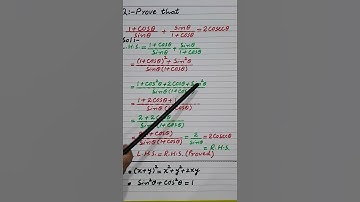 Q:- Prove that
1+cosθ/sinθ + sinθ/1+cosθ = 2cosecθ
Sol:-
L.H.S = 1+cosθ/sinθ + sinθ/1+cosθ
= (1+cosθ)²+sin²θ/sinθ(1+cosθ)
= 1+cos²θ+2cosθ+sin²θ/sinθ(1+
= 1+2cosθ+1/sinθ(1+
= 2+2cosθ/sinθ(1+
= 2/sinθ = 2cosecθ
= R.H.S
L.H.S = R.H.S. (Proved)
• (x+y)² = x²+y²+2xy
• sin²θ+cos²θ = 1